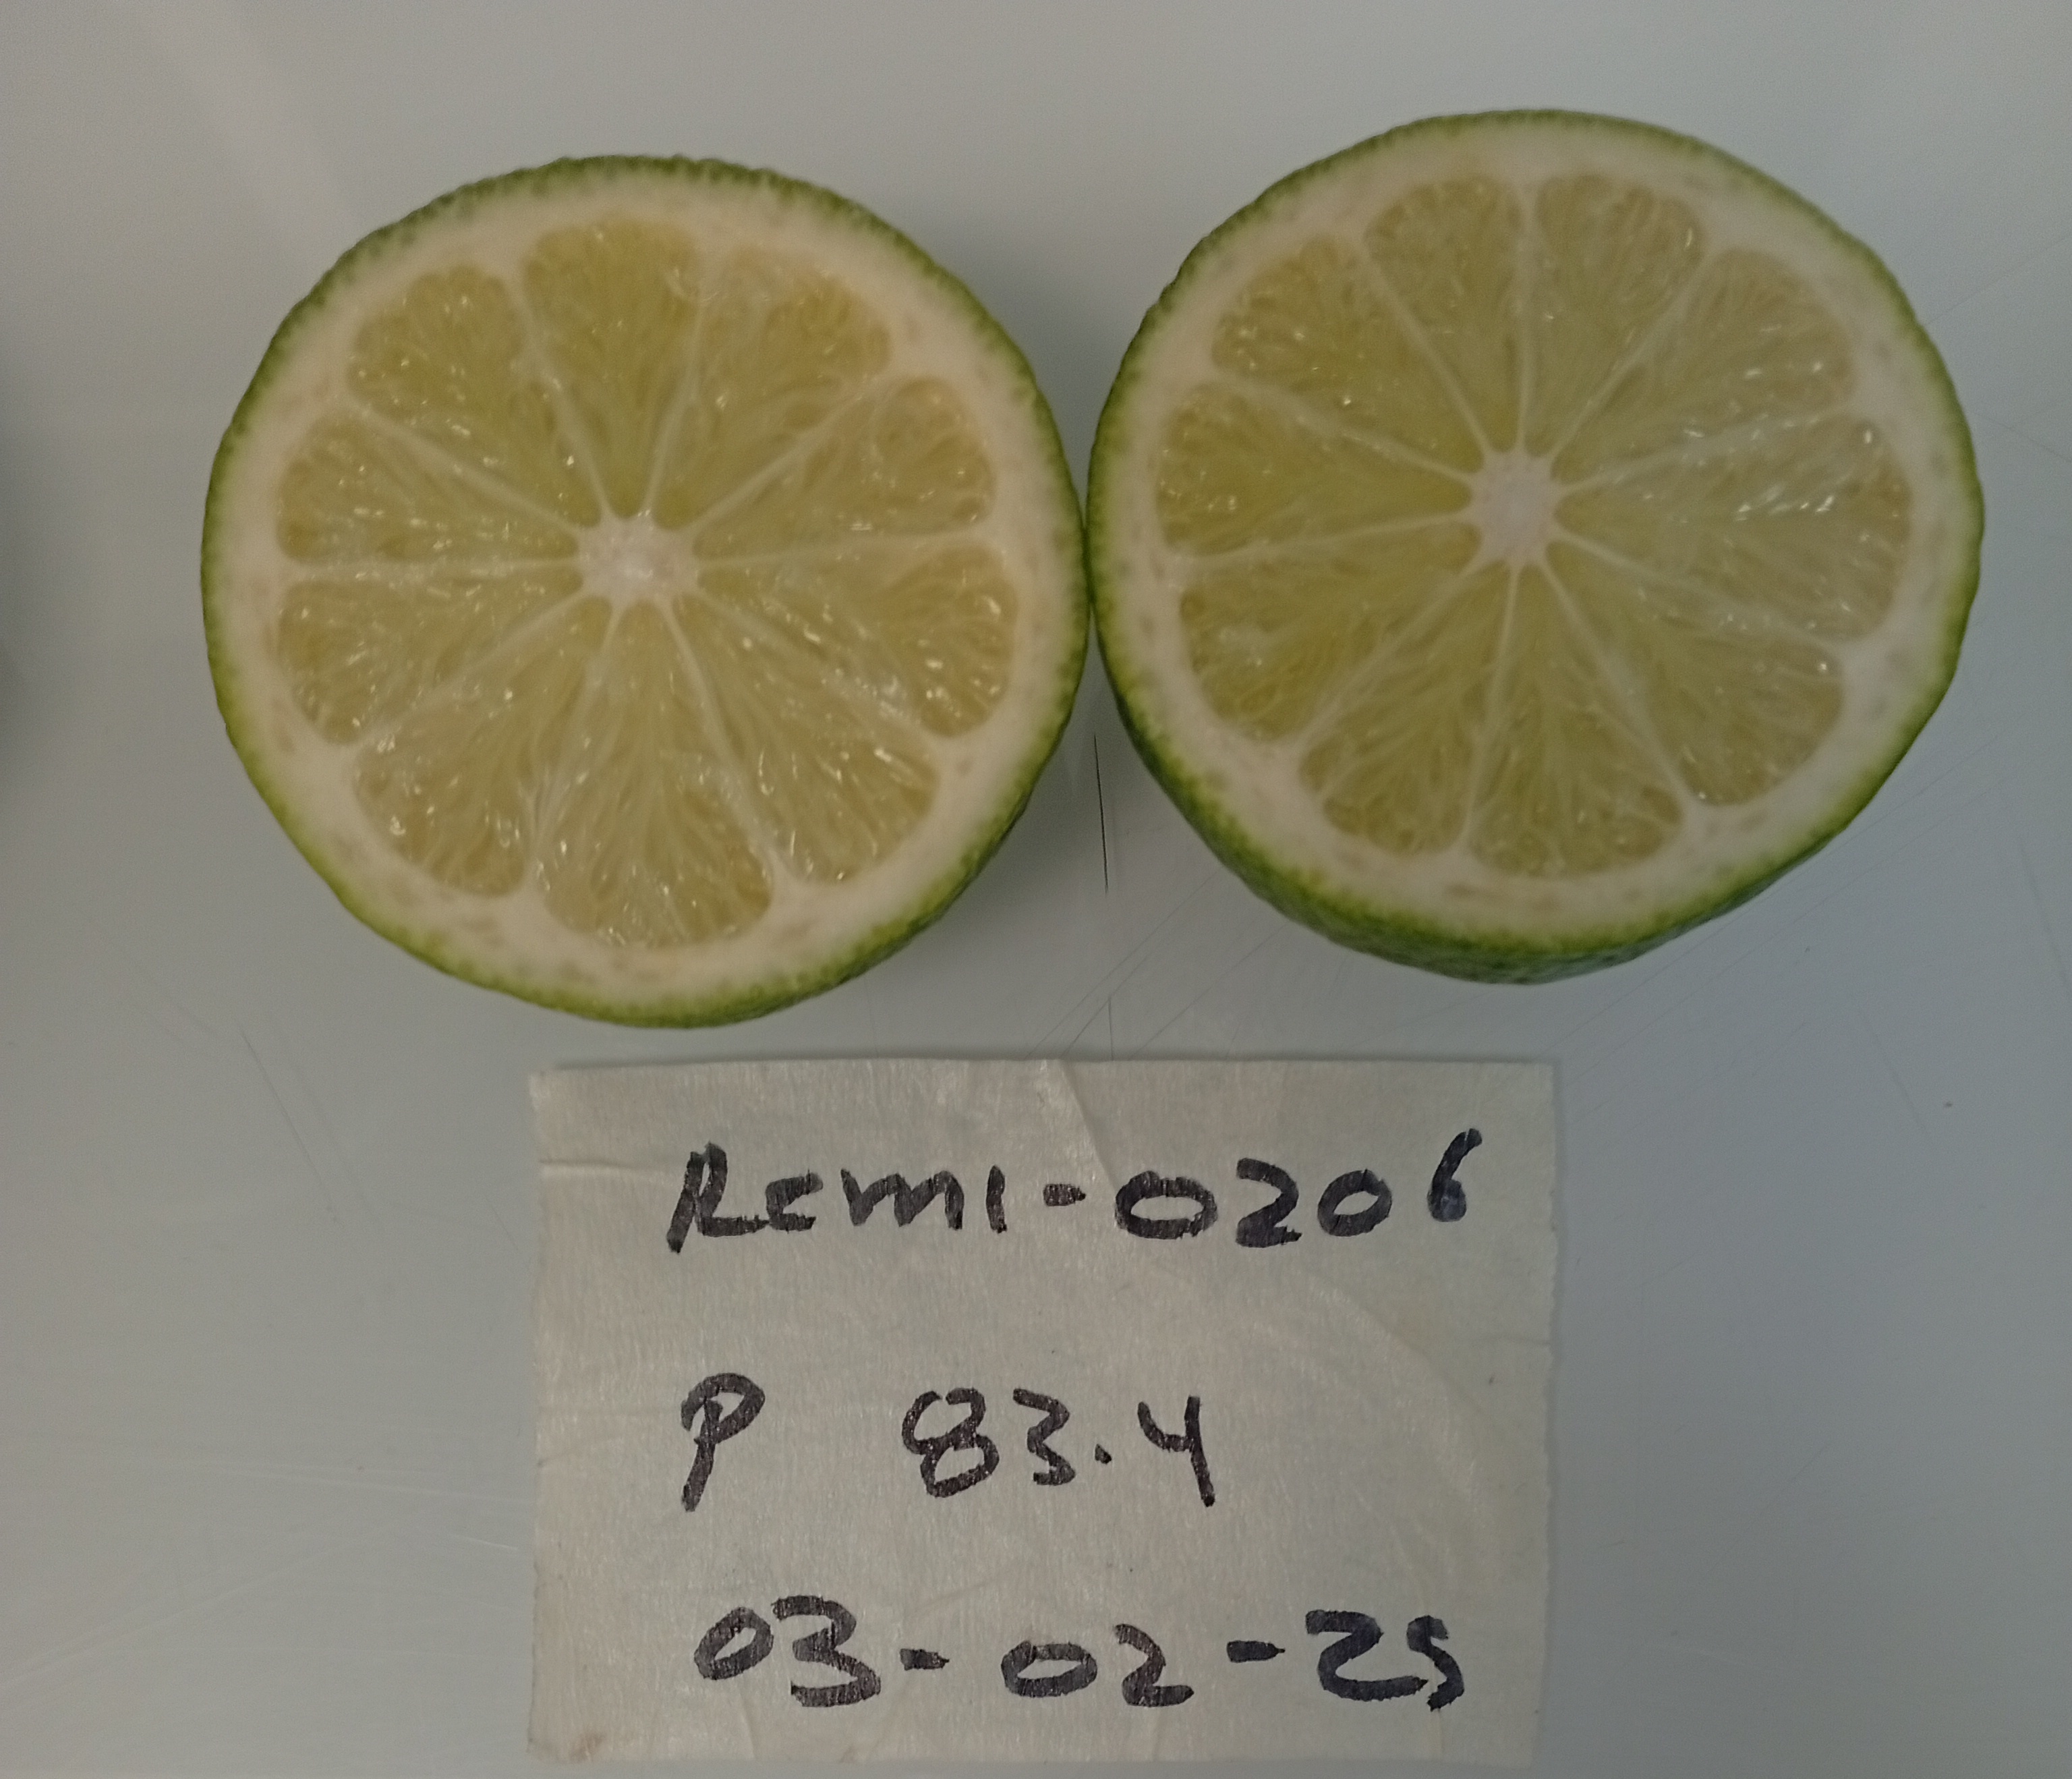 Remi-0206
P 83.4
03-02-25